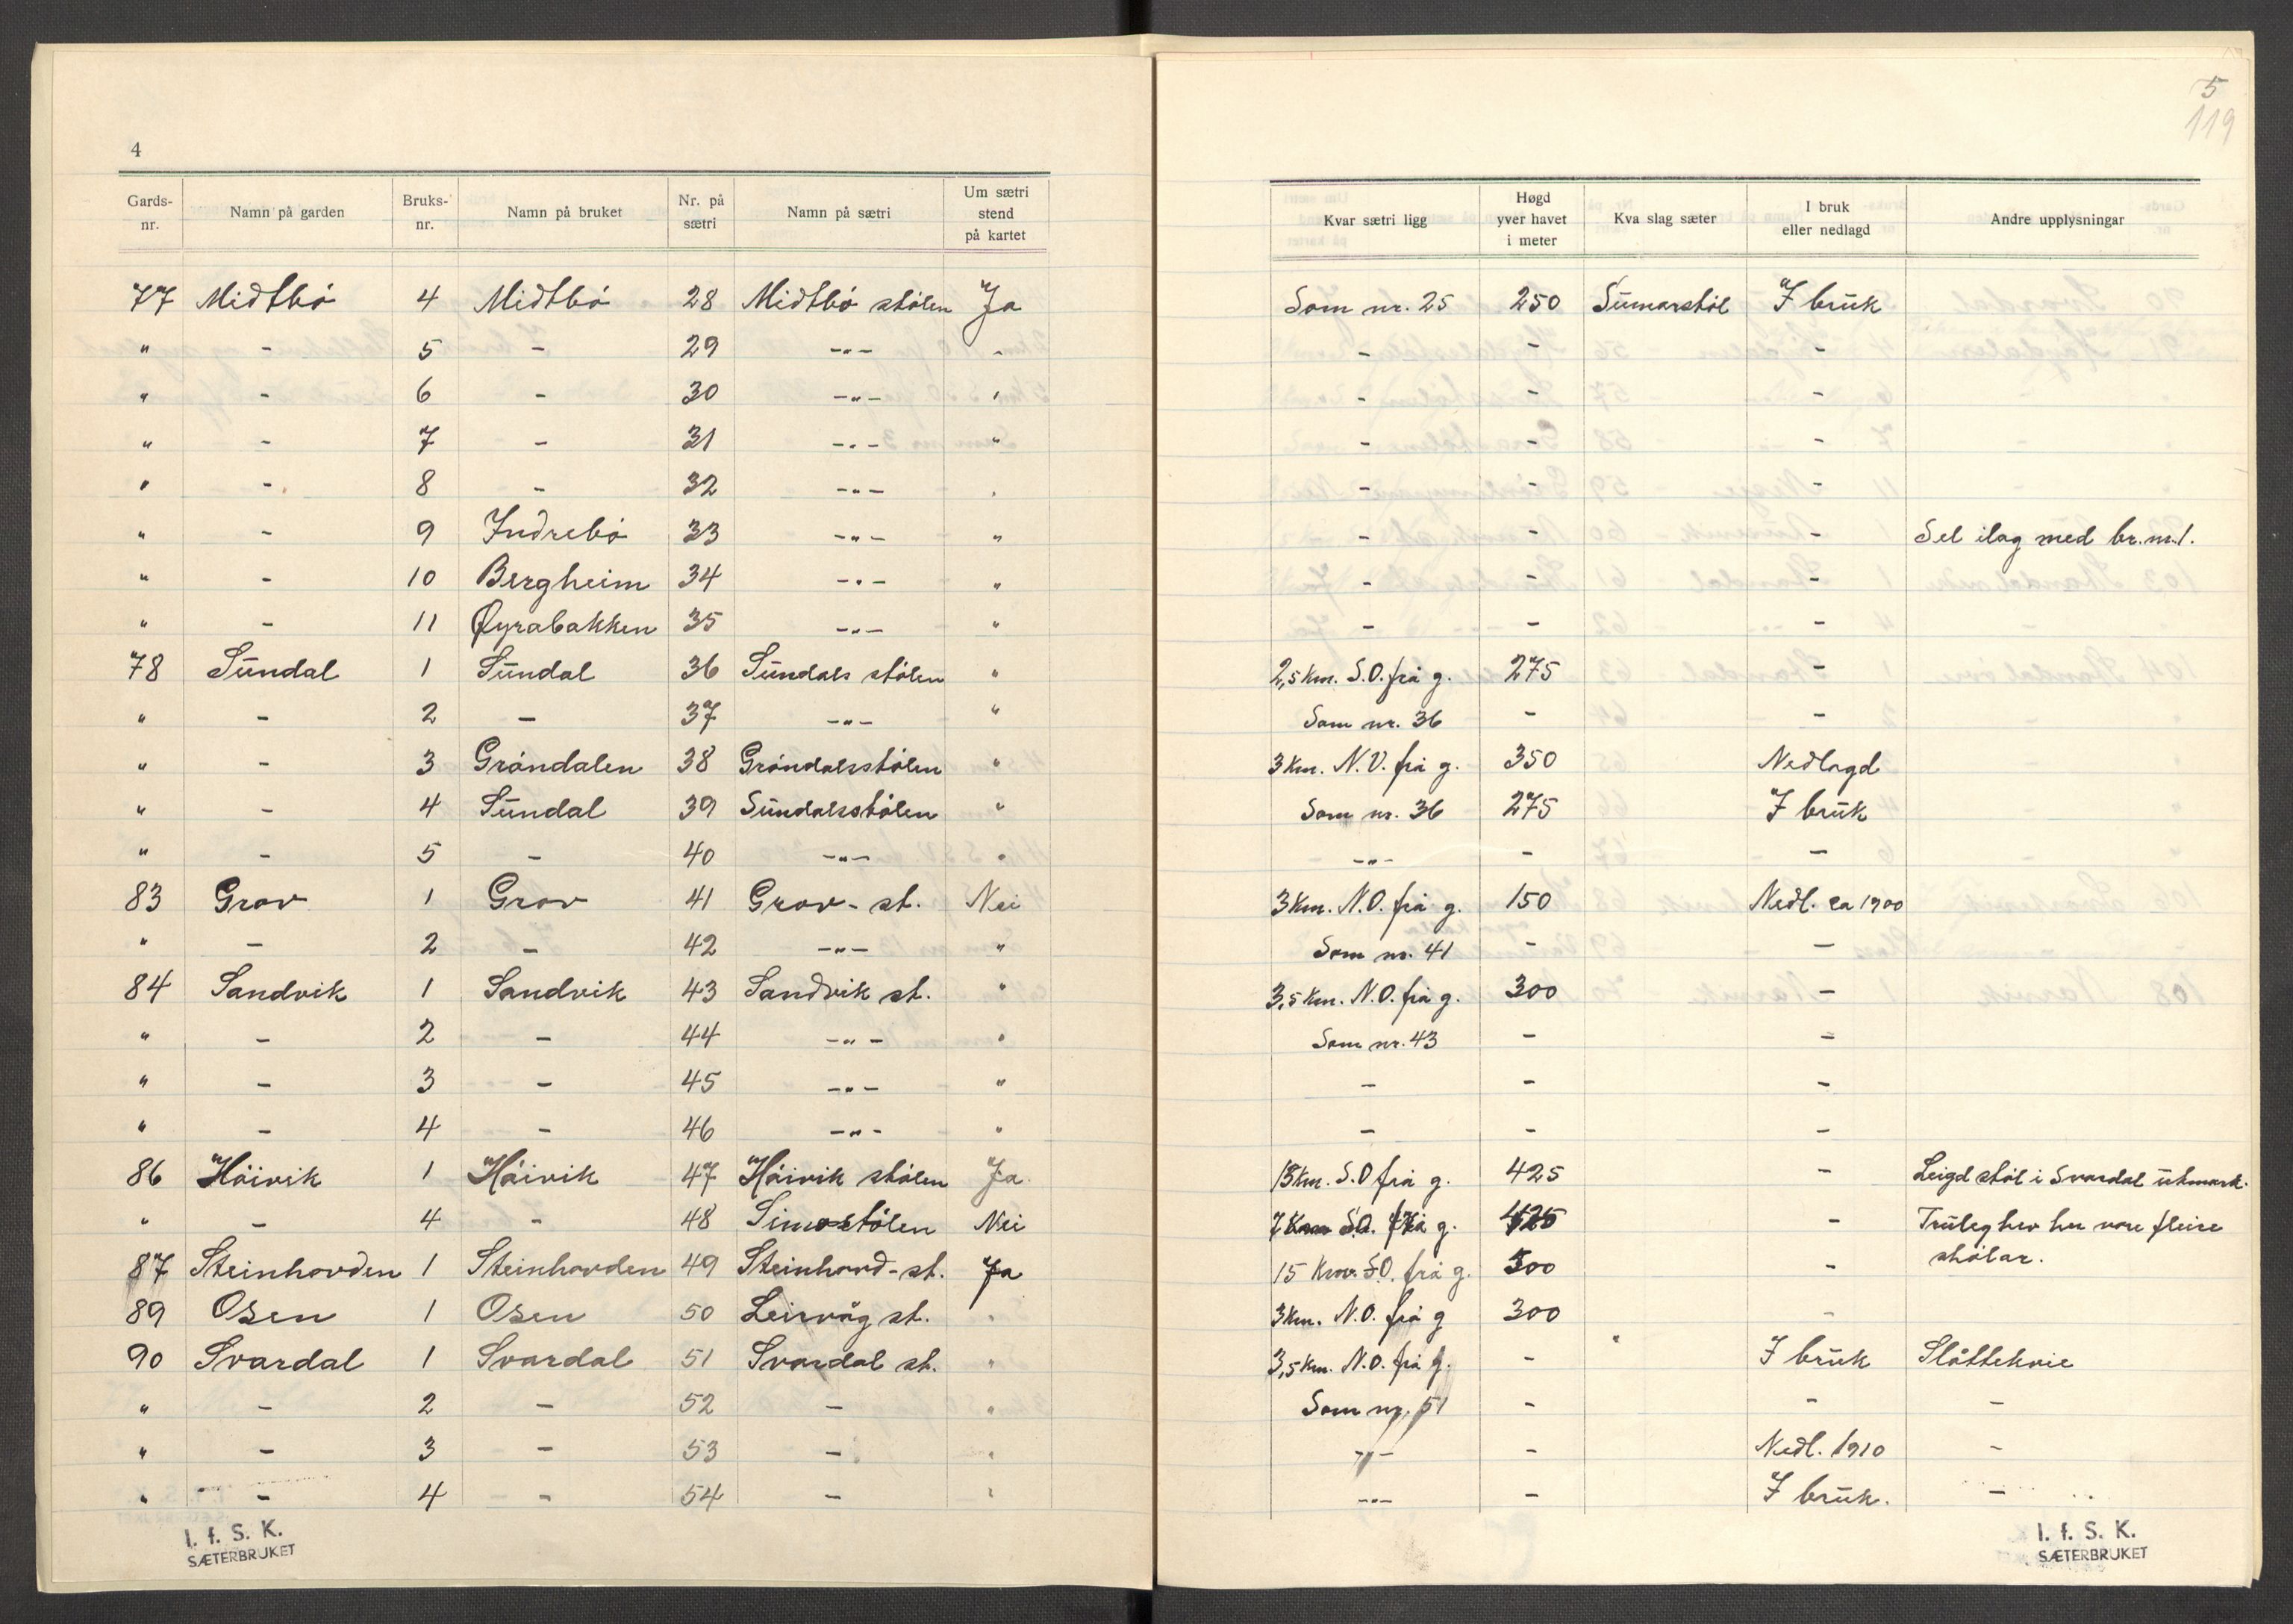 4
Gards-nr. Namn på garden Bruks-nr. Namn på bruket Nr. på sætri Namn på sætri Um sætri stend på kartet
77 Midtbø 4 Midtbø 28 Midtbø stølen Ja
" - 5 - 29 -"- "
" - 6 - 30 -"- "
" - 7 - 31 -"- "
" - 8 - 32 -"- "
" - 9 Indrebø 33 -"- "
" - 10 Bergheim 34 -"- "
" - 11 Øyrabakken 35 -"- "
78 Sundal 1 Sundal 36 Sundals stølen "
" - 2 - 37 -"- "
" - 3 Grøndalen 38 Grøndalsstølen "
" - 4 Sundal 39 Sundalsstølen "
" - 5 - 40 -"- "
83 Grov 1 Grov 41 Grov-st. Nei
" - 2 - 42 -"- "
84 Sandvik 1 Sandvik 43 Sandvik st. "
" - 2 - 44 -"- "
" - 3 - 45 -"- "
" - 4 - 46 -"- "
86 Høivik 1 Høivik 47 Høivik stølen Ja
" - 4 - 48 Simostølen Nei
87 Steinhovden 1 Steinhovden 49 Steinhovd-st. Ja
89 Osen 1 Osen 50 Leirvåg st. "
90 Svardal 1 Svardal 51 Svardal st. "
" - 2 - 52 - "
" - 3 - 53 - "
" - 4 - 54 - "
I. f. S. K.
SÆTERBRUKET
5
119
Kvar sætri ligg Høgd yver havet i meter Kva slag sæter I bruk eller nedlagd Andre upplysningar
Som nr. 25 250 Sumarstøl I bruk
- - -
- - -
- - -
- - -
- - - Sel ilag med br.nr.1.
- - -
- - -
2,5 km. S.O. frå g. 275 -
Som nr. 36 - -
3 km. N.V. frå g. 350 Nedlagd
Som nr. 36 275 I bruk
-"- - -
3 km. N.O. frå g. 150 Nedl. ca 1900
Som nr. 41 - -
3,5 km. N.O. frå g. 300 -
Som nr. 43 - -
- - -
- - -
13 km. S.O frå g. 425 - Leigd støl i Svardal utmark.
7 km S.O. frå g. - Truleg hev her vore fleire
15 km. S.O. frå g. 300 - stølar.
3 km. N.O. frå g 300 -
3,5 km. N.O. frå g. - " I bruk Slåttekvie
Som nr. 51 - - -
-"- - Nedl. 1910 -
-"- - I bruk. -
I. f. S. K.
SÆTERBRUKET